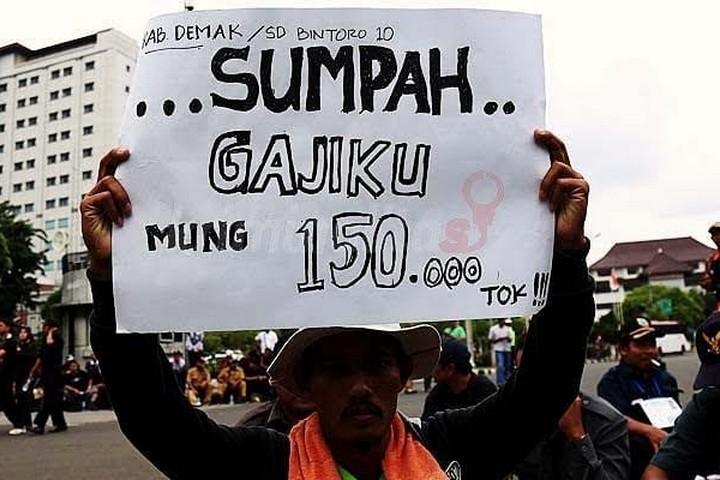 KAB. DEMAK / SD BINTORO 10
...SUMPAH..
GAJIKU
MUNG 150.000
TOK!!!